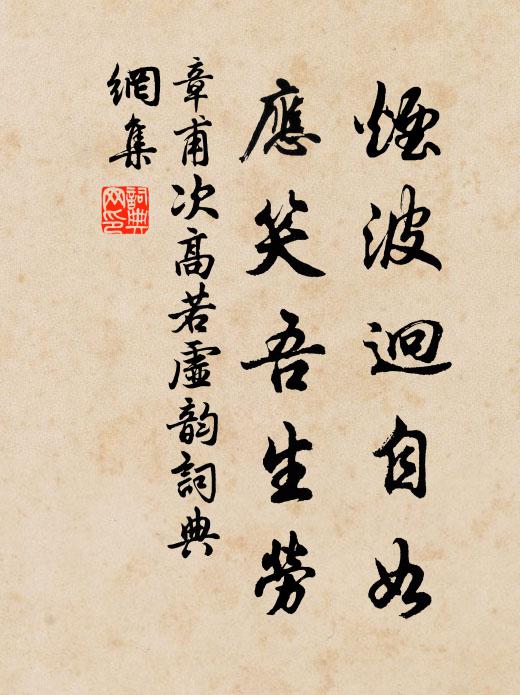 煙波迴自如
應笑吾生勞
章甫次高若虛韵詞典
網集
詞典
网印